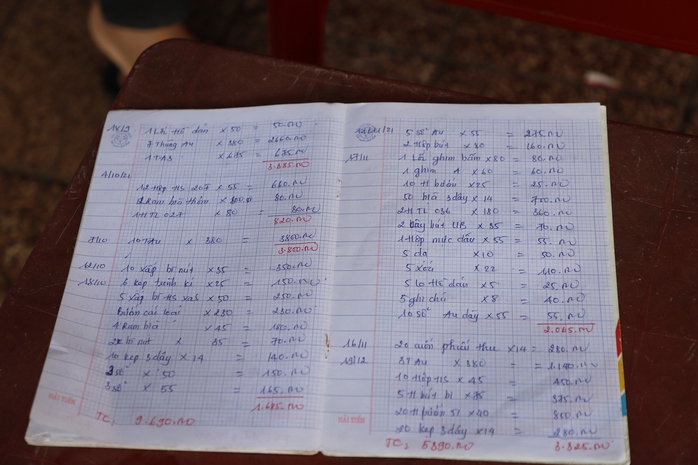 18/9 1 Lố Hồ dán ×50 = 50.000
7 Thùng Au × 380 = 2660.000
1 TA3 × 675 = 675.000
3.385.000
4/10/21
12 Hộp × 55 = 660.000
80.000
1H TL 027 × 80 = 80.000
820.000
7/10 10 T Au × 380 = 3800.000
3.800.000
12/10 10 xấp bì nút × 35 = 350.000
18/10 6 kẹp × 25 = 150.000
5 xấp bì HS × 50 = 250.000
các loại × 230 = 230.000
4 Ram bìa × 45 =
2 bì nút × 35 = 70.000
10 kẹp 3 dây × 14 = 140.000
3 số × 50 = 150.000
3 số × 55 = 165.000
1.685.000
TC: 9.690.000
5 số Au × 55 = 275.000
2 Hộp bút × 80 = 160.000
17/11 1 Lố ghim bấm × 80 = 80.000
1 ghim × 60 = 60.000
10 × 25 = 25.000
50 bìa 3 dây × 14 = 700.000
2H TL 036 × 180 = 360.000
2 cây bút UB × 35 = 70.000
1 Hộp mực dấu × 55 = 55.000
5 da × 10 = 50.000
5 xóa × 22 = 110.000
5 Lọ Hồ dán × 5 = 25.000
5 ghi chú × 8 = 40.000
10 số Au dày × 55 = 55.000
2.065.000
16/11 20 cuốn phiếu thu × 14 = 280.000
19/12 3T Au × 380 = 1.140.000
10 Hộp HS × 45 = 450.000
5H bút bi × 75 = 375.000
20H × 40 = 800.000
20 kẹp 3 dây × 14 = 280.000
TC: 5390.000 3.325.000